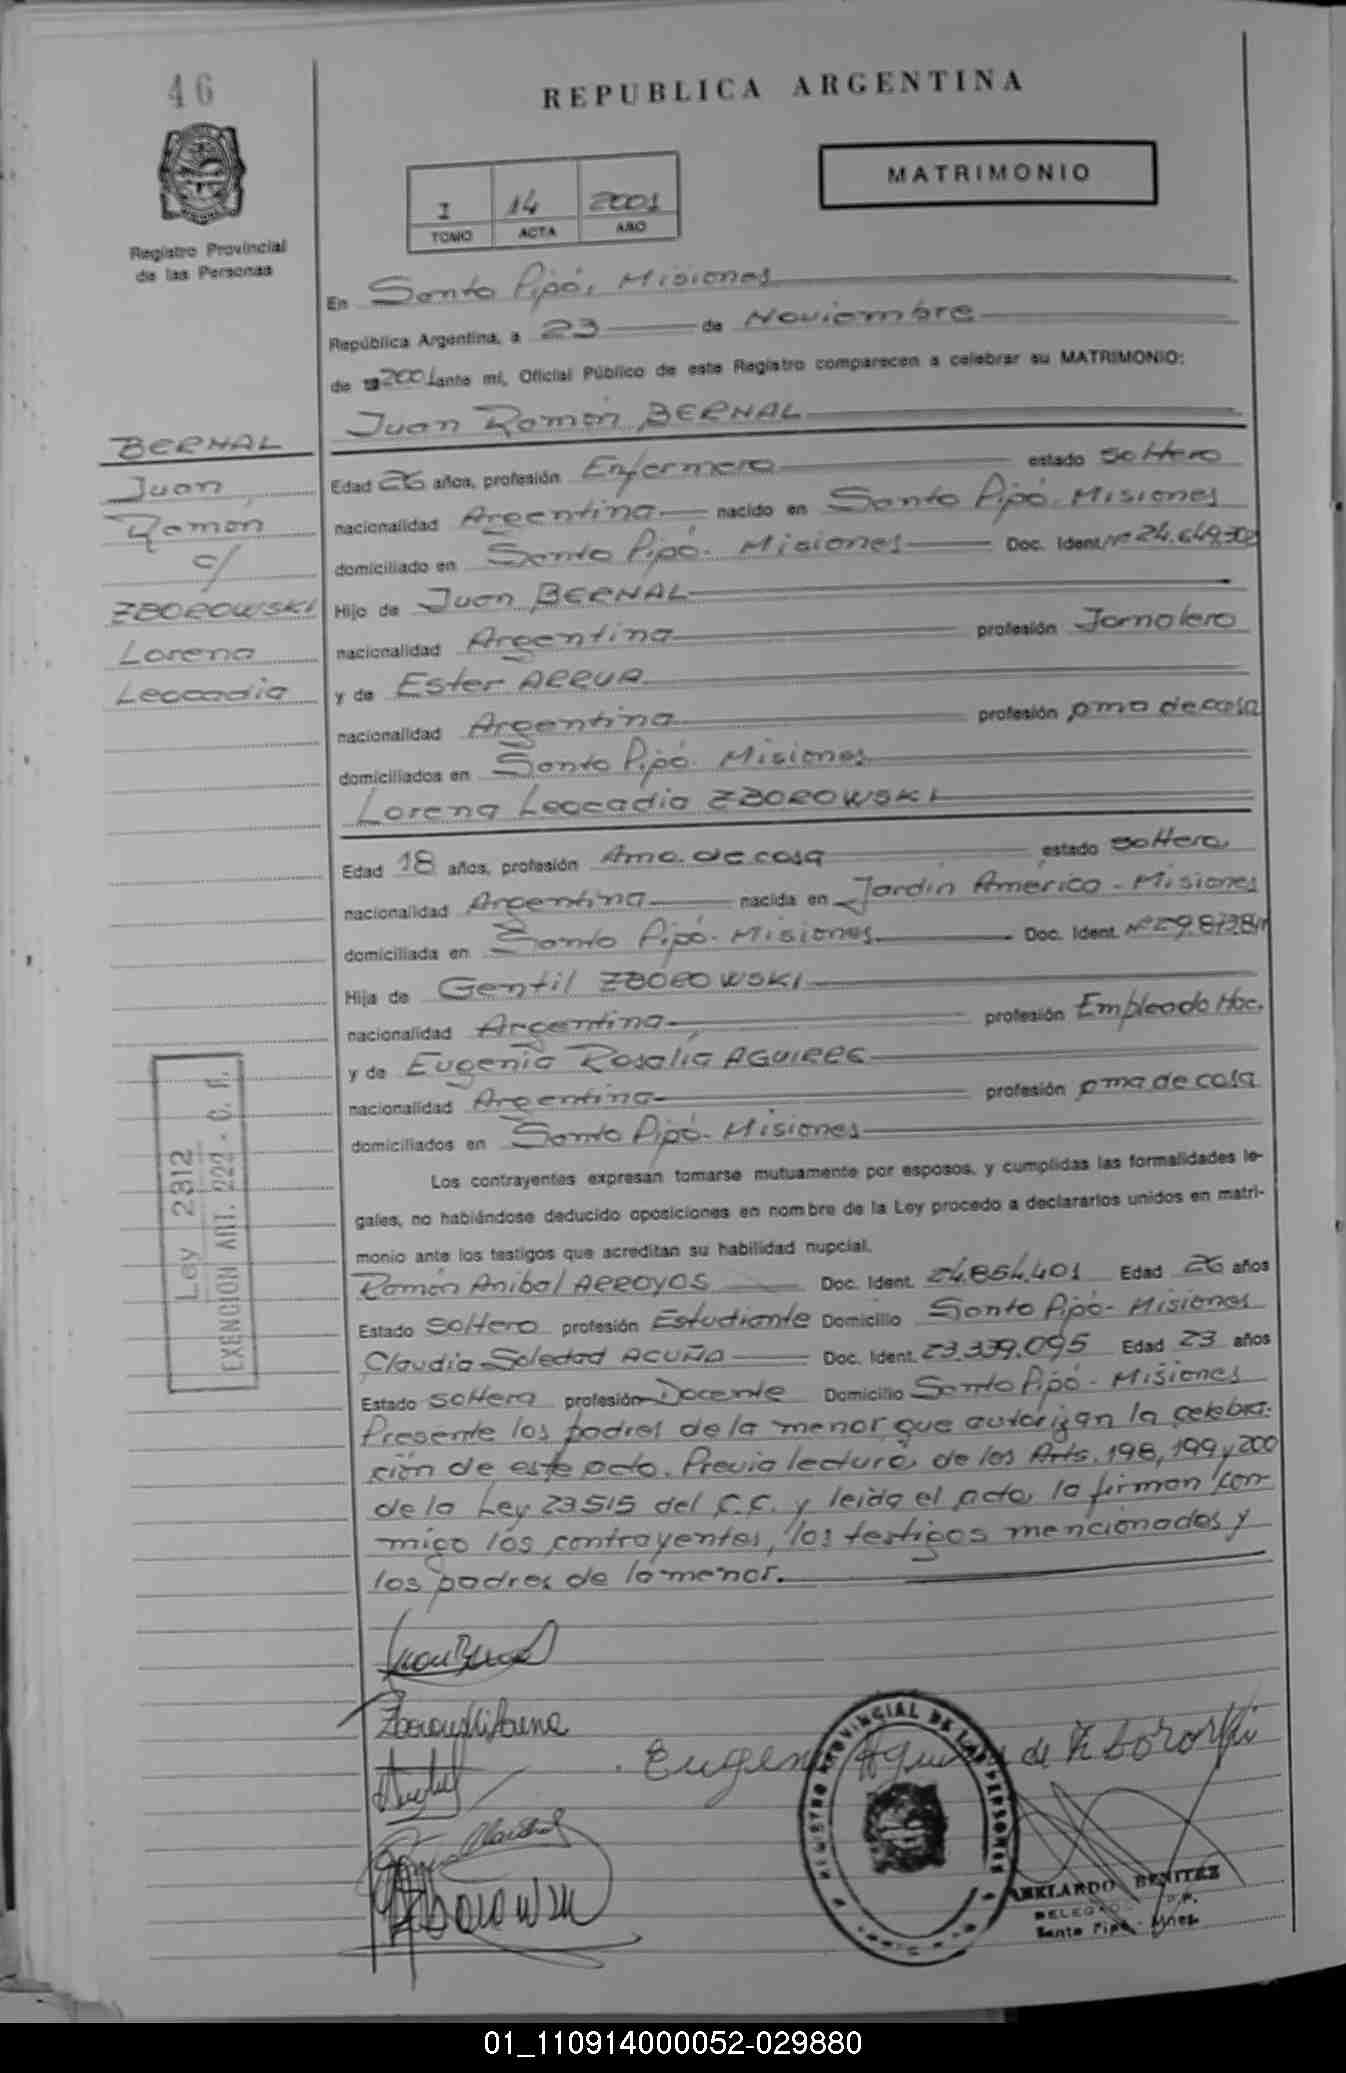 46
REPUBLICA ARGENTINA
MATRIMONIO
I 14 2001
TOMO ACTA AÑO
Registro Provincial
de las Personas
En Santo Pipó, Misiones
República Argentina, a 23 de Noviembre
de 2001 ante mí, Oficial Público de este Registro comparecen a celebrar su MATRIMONIO:
Juan Ramón BERNAL
BERNAL
Juan
Ramón
c/
ZBOROWSKI
Lorena
Leocadia
Edad 26 años, profesión Enfermero estado soltero
nacionalidad Argentina nacido en Santo Pipó. Misiones
domiciliado en Santo Pipó. Misiones Doc. Ident. Nº 24.649.
Hijo de Juan BERNAL
nacionalidad Argentina profesión Jornalero
y de Ester ARRUA
nacionalidad Argentina profesión ama de casa
domiciliados en Santo Pipó. Misiones
Lorena Leocadia ZBOROWSKI
Edad 18 años, profesión Ama de casa estado soltera
nacionalidad Argentina nacida en Jardín América - Misiones
domiciliada en Santo Pipó. Misiones Doc. Ident. Nº
Hija de Gentil ZBOROWSKI
nacionalidad Argentina profesión Empleado Hac.
y de Eugenia Rosalía AGUIRRE
nacionalidad Argentina profesión ama de casa
domiciliados en Santo Pipó. Misiones
Los contrayentes expresan tomarse mutuamente por esposos, y cumplidas las formalidades le-
gales, no habiéndose deducido oposiciones en nombre de la Ley procedo a declararlos unidos en matri-
monio ante los testigos que acreditan su habilidad nupcial.
Ramón Anibal ARROYOS Doc. Ident. 24.854.401 Edad 26 años
Estado soltero profesión Estudiante Domicilio Santo Pipó - Misiones
Claudia Soledad ACUÑA Doc. Ident. 23.339.095 Edad 23 años
Estado soltera profesión Docente Domicilio Santo Pipó - Misiones
Presente los padres de la menor que autorizan la celebra-
ción de este acto. Previa lectura de los Arts. 198, 199 y 200
de la Ley 23515 del C.C. y leída el acta, la firman con-
migo los contrayentes, los testigos mencionados y
los padres de la menor.
Ley 2312
EXENCION ART. 222 - C. F.
Juan Bernal
Zborowski Lorena
Eugenia Aguirre de Zborowski
Zborowski
REGISTRO PROVINCIAL DE LAS PERSONAS
ABELARDO BENITEZ
DELEGADO
Santo Pipó - Mnes.
01_110914000052-029880